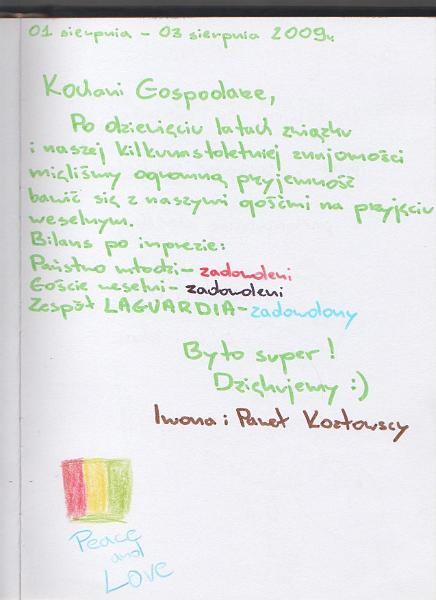 01 sierpnia - 03 sierpnia 2009r.
Kochani Gospodarze,
Po dziewięciu latach związku
i naszej kilkunastoletniej znajomości
mieliśmy ogromną przyjemność
bawić się z naszymi gośćmi na przyjęciu
weselnym.
Bilans po imprezie:
Państwo młodzi - zadowoleni
Goście weselni - zadowoleni
Zespół LAGUARDIA - zadowolony
Było super!
Dziękujemy :)
Iwona i Paweł Kozłowscy
Peace
and
Love